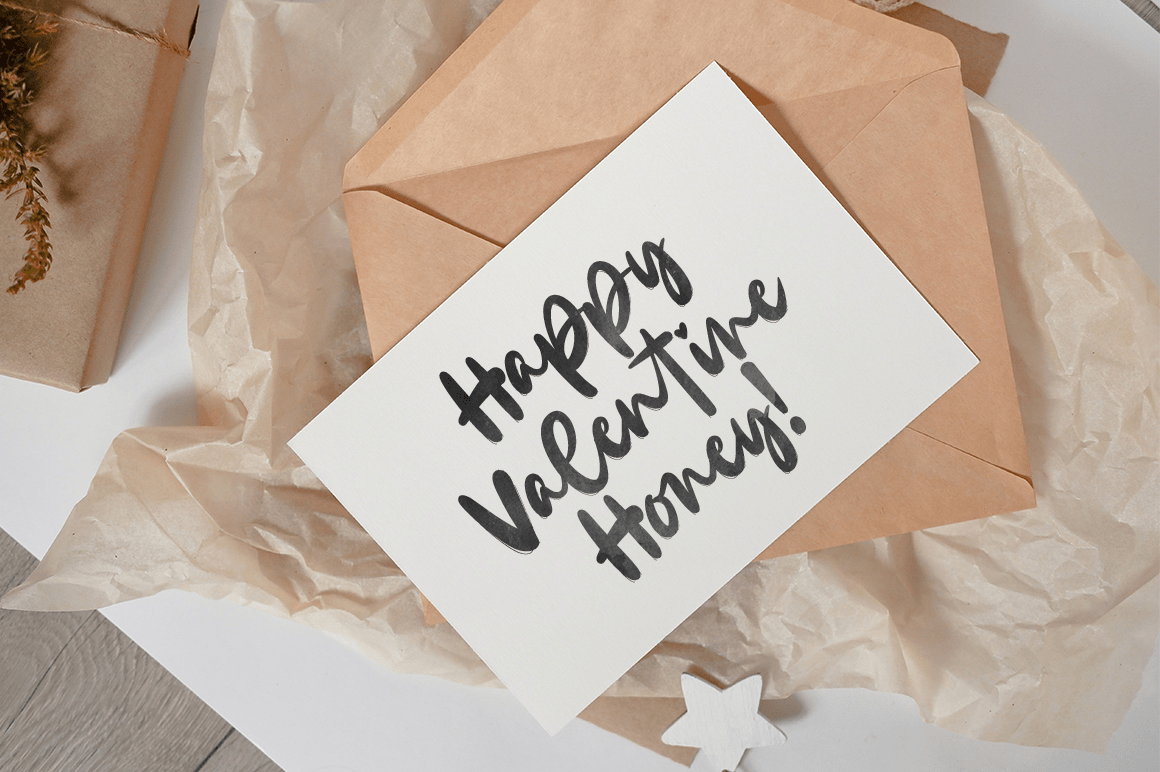 Happy
Valentine
Honey!